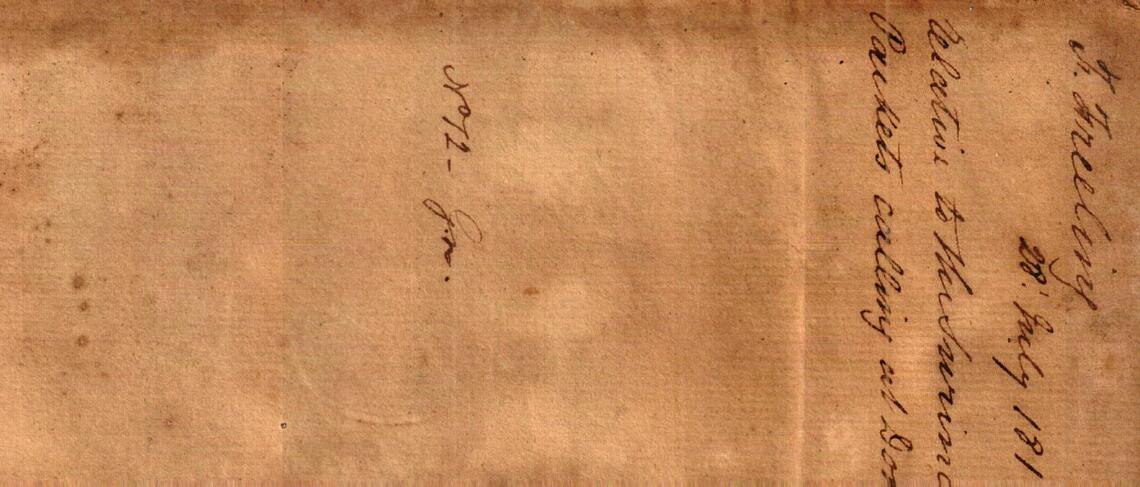 F. Freeling
28. July 181
Relative to the Surina
Packets calling at Do
No 12 -